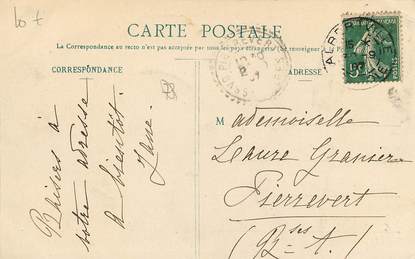 10 t
CARTE POSTALE
La Correspondance au recto n'est pas acceptée par tous les pays étrangers (Se renseigner à la Poste)
CORRESPONDANCE
ADRESSE
Baisers à
votre adresse
A bientôt.
Jane.
Mademoiselle
Laure Granier
Pierrevert
(Bses A.)
PIERREVERT
ALBERTVILLE
5
POSTES